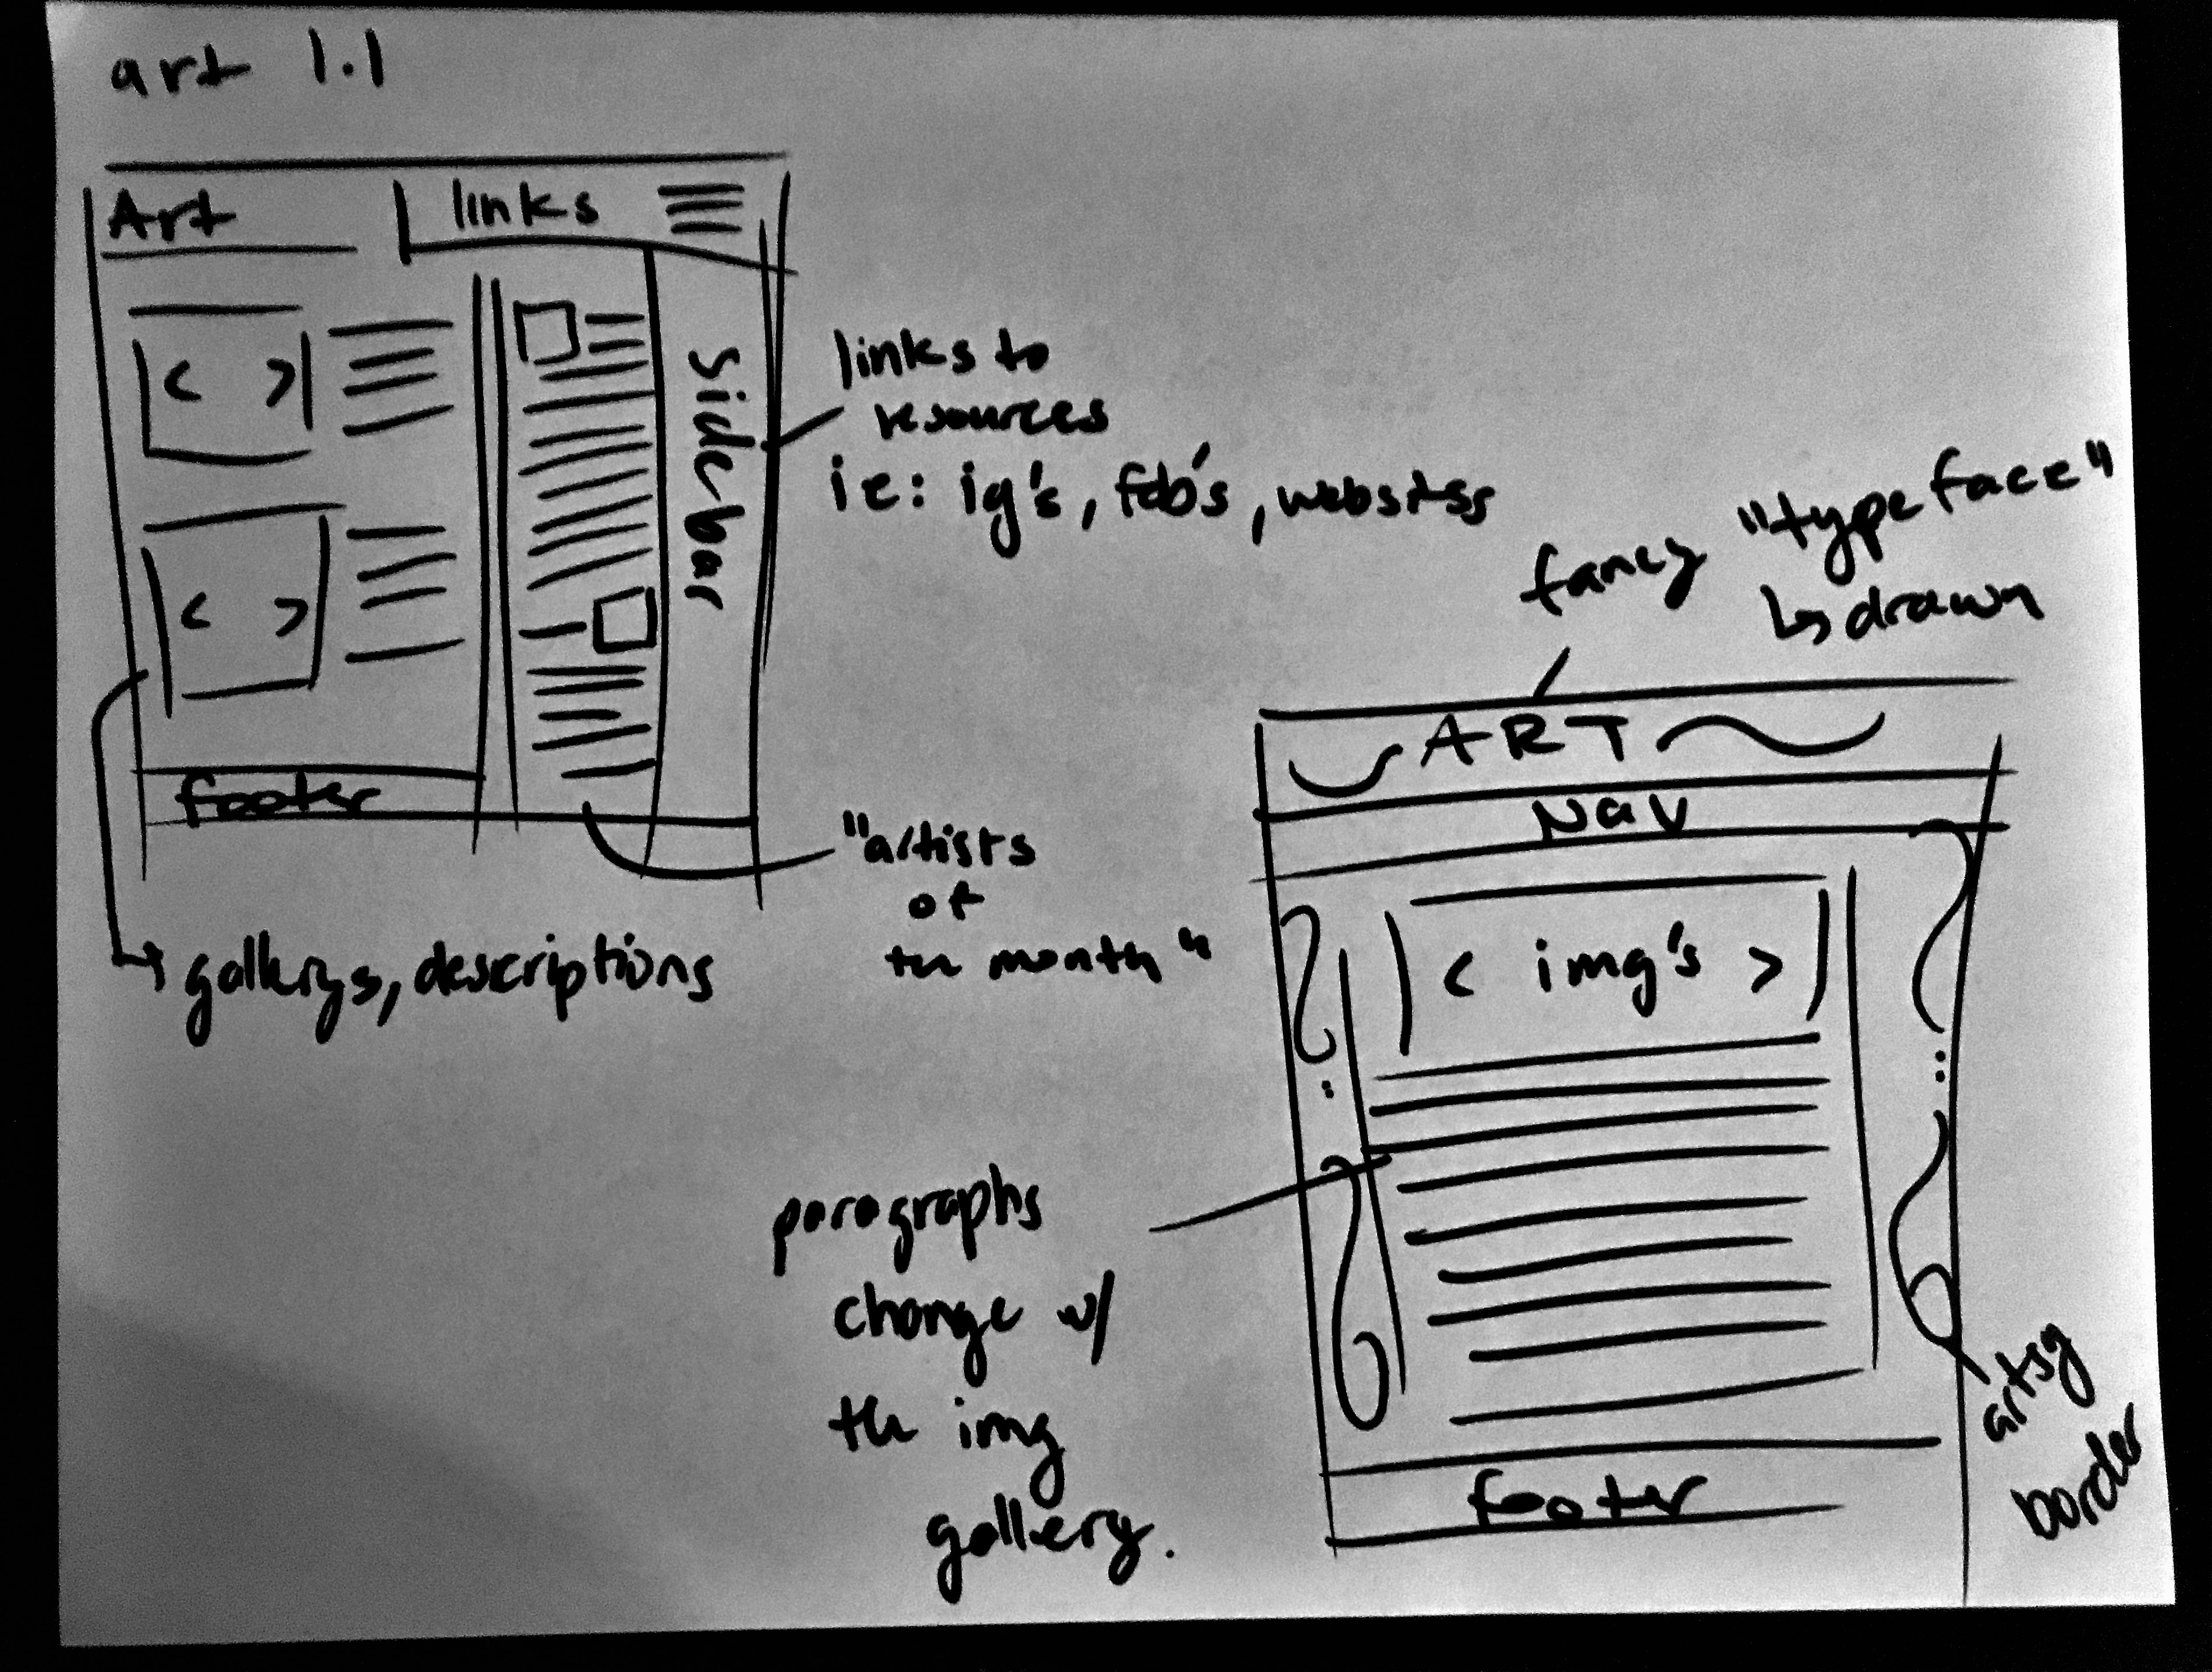 art 1.1
Art
links
< >
< >
Sidebar
footer
links to
resources
ie: ig's, fcb's, websitss
"artists
of
the month"
gallerys, descriptions
fancy "typeface"
↳ drawn
ART
Nav
< img's >
paragraphs
change w/
the img
gallery.
footer
artsy
border